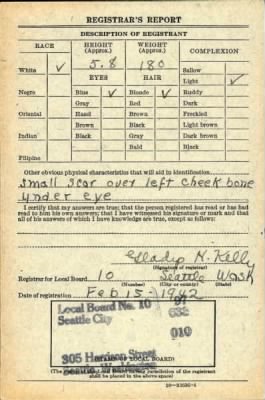 REGISTRAR'S REPORT
DESCRIPTION OF REGISTRANT
RACE HEIGHT (Approx.) WEIGHT (Approx.) COMPLEXION
White ✓ 5.8 180 Sallow
EYES HAIR Light ✓
Negro Blue ✓ Blonde ✓ Ruddy
Gray Red Dark
Oriental Hazel Brown Freckled
Brown Black Light brown
Indian Black Gray Dark brown
Bald Black
Filipino
Other obvious physical characteristics that will aid in identification
small scar over left cheek bone
under eye
I certify that my answers are true; that the person registered has read or has had
read to him his own answers; that I have witnessed his signature or mark and that
all of his answers of which I have knowledge are true, except as follows:
Gladys N. Kelly
(Signature of registrar)
Registrar for Local Board 10 Seattle Wash
(Number) (City or county) (State)
Date of registration Feb 15 - 1942
Local Board No. 10
Seattle City
010
305 Harrison Street
(STAMP OF LOCAL BOARD)
(The stamp of the Local Board having jurisdiction of the registrant
shall be placed in the above space)